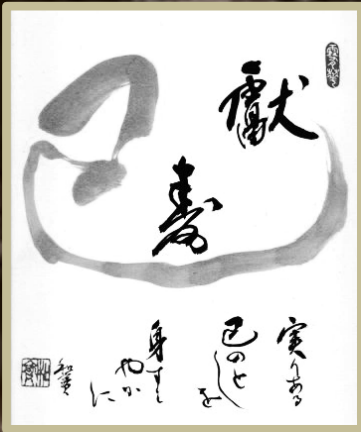 巳
獻
壽
実りある
巳のとしを
身すこ
やか
に